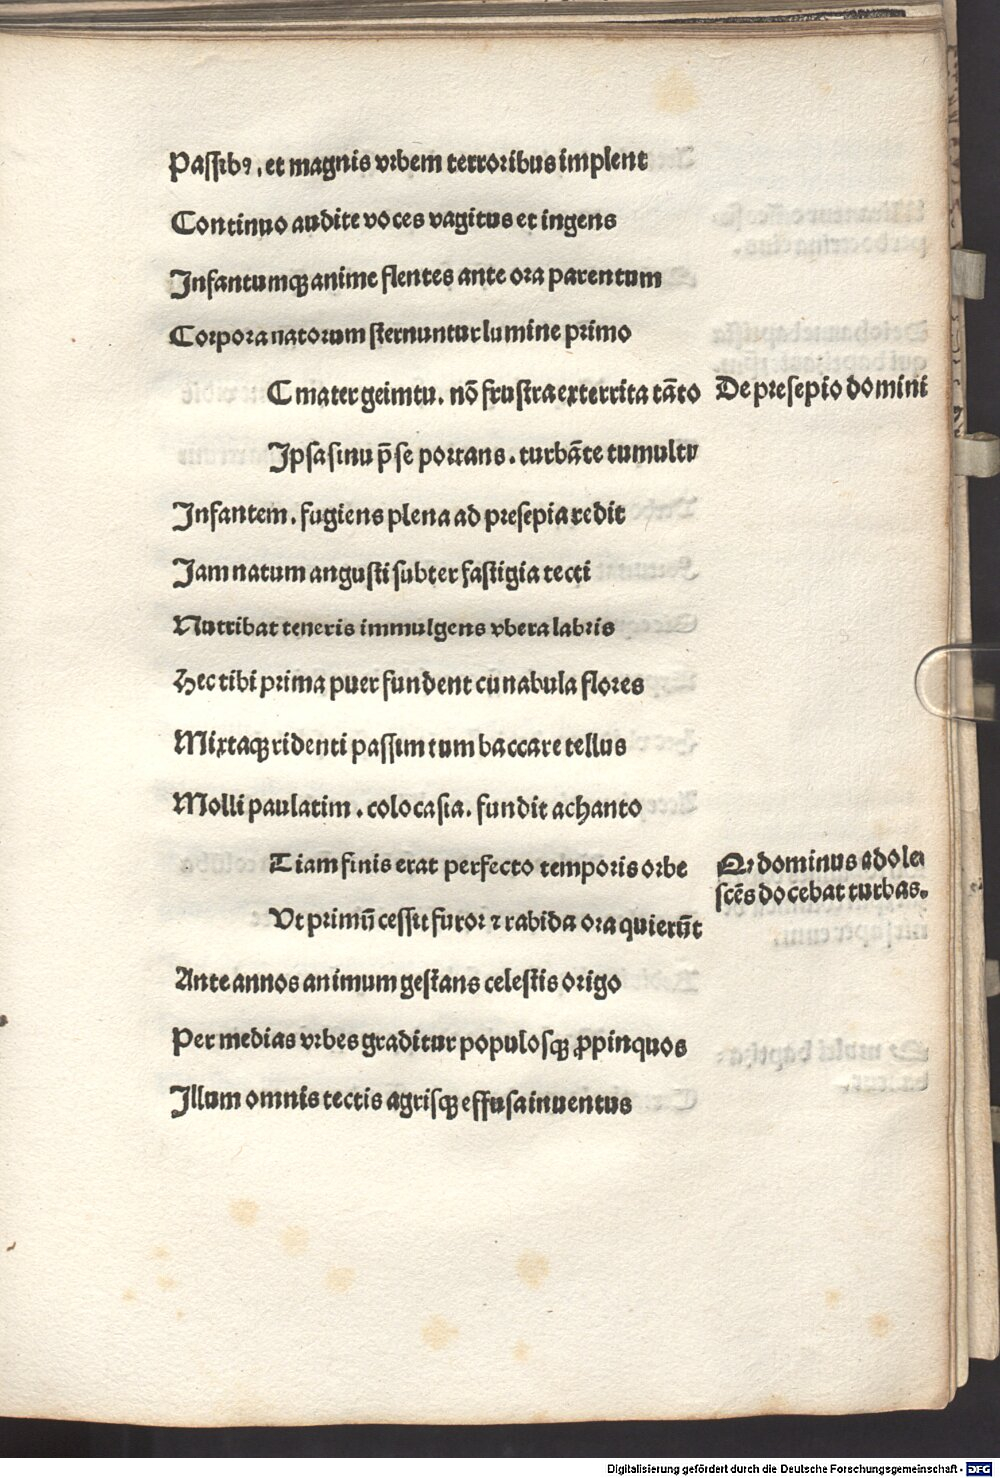 Passibꝰ. et magnis vrbem terroribus implent
Continuo audite voces vagitus et ingens
Infantumqꝫ anime flentes ante ora parentum
Corpora natorum sternuntur lumine primo
C mater geimtu. nō frustra exterrita tāto
De presepio domini
Ipsa sinu p̄ se portans. turbāte tumultu
Infantem. fugiens plena ad presepia redit
Iam natum angusti subter fastigia tecti
Nutribat teneris immulgens vbera labris
Hec tibi prima puer fundent cunabula flores
Mixtaqꝫ ridenti passim tum baccare tellus
Molli paulatim. colocasia. fundit achanto
T iam finis erat perfecto temporis orbe
Qꝛ dominus adolei
scēs docebat turbas.
Vt primū cessit furor ⁊ rabida ora quierūt
Ante annos animum gestans celestis origo
Per medias vrbes graditur populosqꝫ ꝓpinquos
Illum omnis tectis agrisqꝫ effusa inuentus
Digitalisierung gefördert durch die Deutsche Forschungsgemeinschaft - DFG